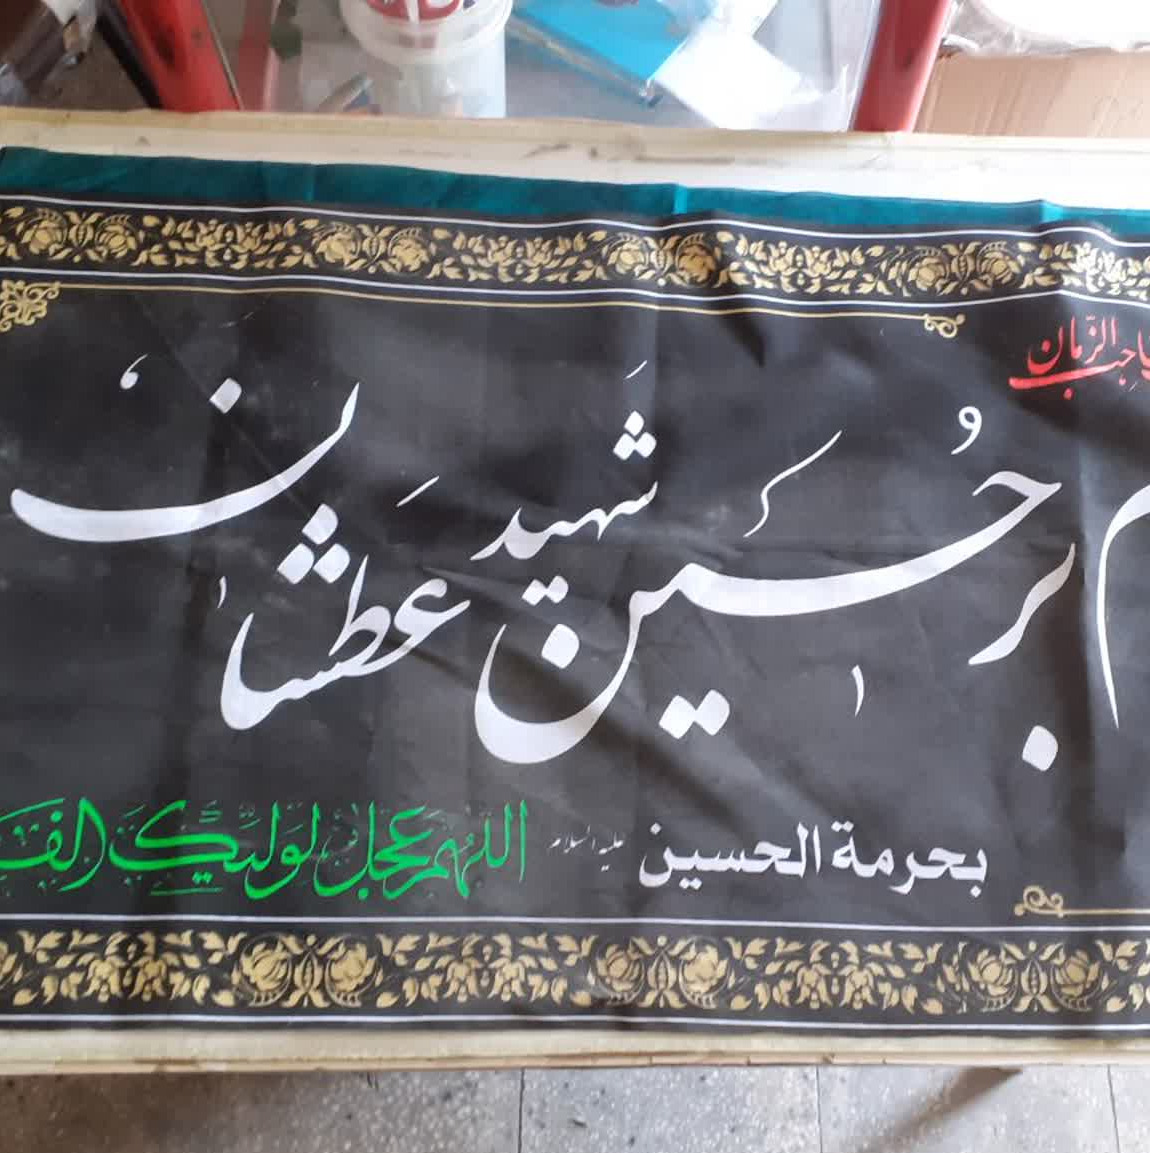 الزمان
بر حسین شهید عطشان
بحرمة الحسین علیه السلام
اللهم عجل لولیک